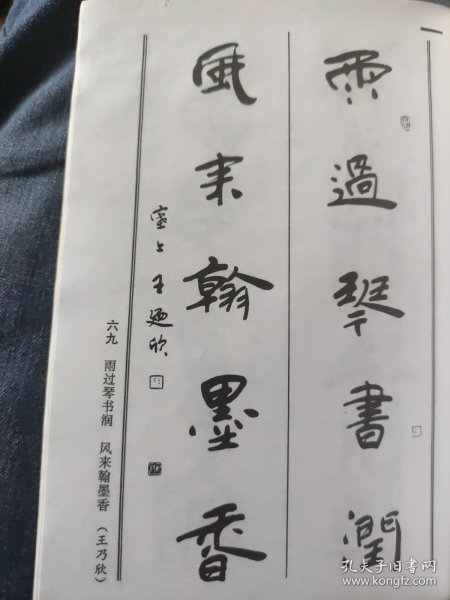 雨過琴書潤
風来翰墨香
塞上王廼欣
六九 雨过琴书润 风来翰墨香（王乃欣）
孔夫子旧书网
www.kongfz.com